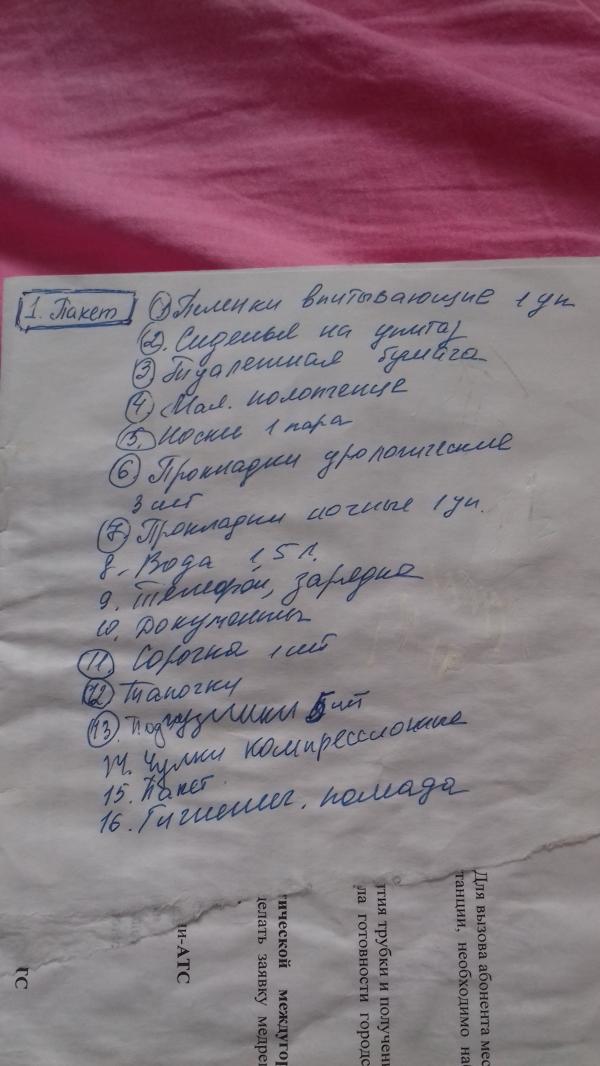 1. Пакет
1 Пеленки впитывающие 1 уп
2. Сиденье на унитаз
3 Туалетная бумага
4 Мал. полотенце
5. Носки 1 пара
6 Прокладки урологические
3 шт
7. Прокладки ночные 1 уп.
8. Вода 1,5 л.
9. Телефон, зарядка
10. Документы
11. Сорочка 1 шт
12 Тапочки
13. Подгузники 5 шт
14. Чулки компрессионные
15. Пакет.
16. Гигиенич. помада
Для вызова абонента мес
танции, необходимо наб
тия трубки и получени
ла готовности городс
тической междугор
делать заявку медрег
ни-АТС
ТС